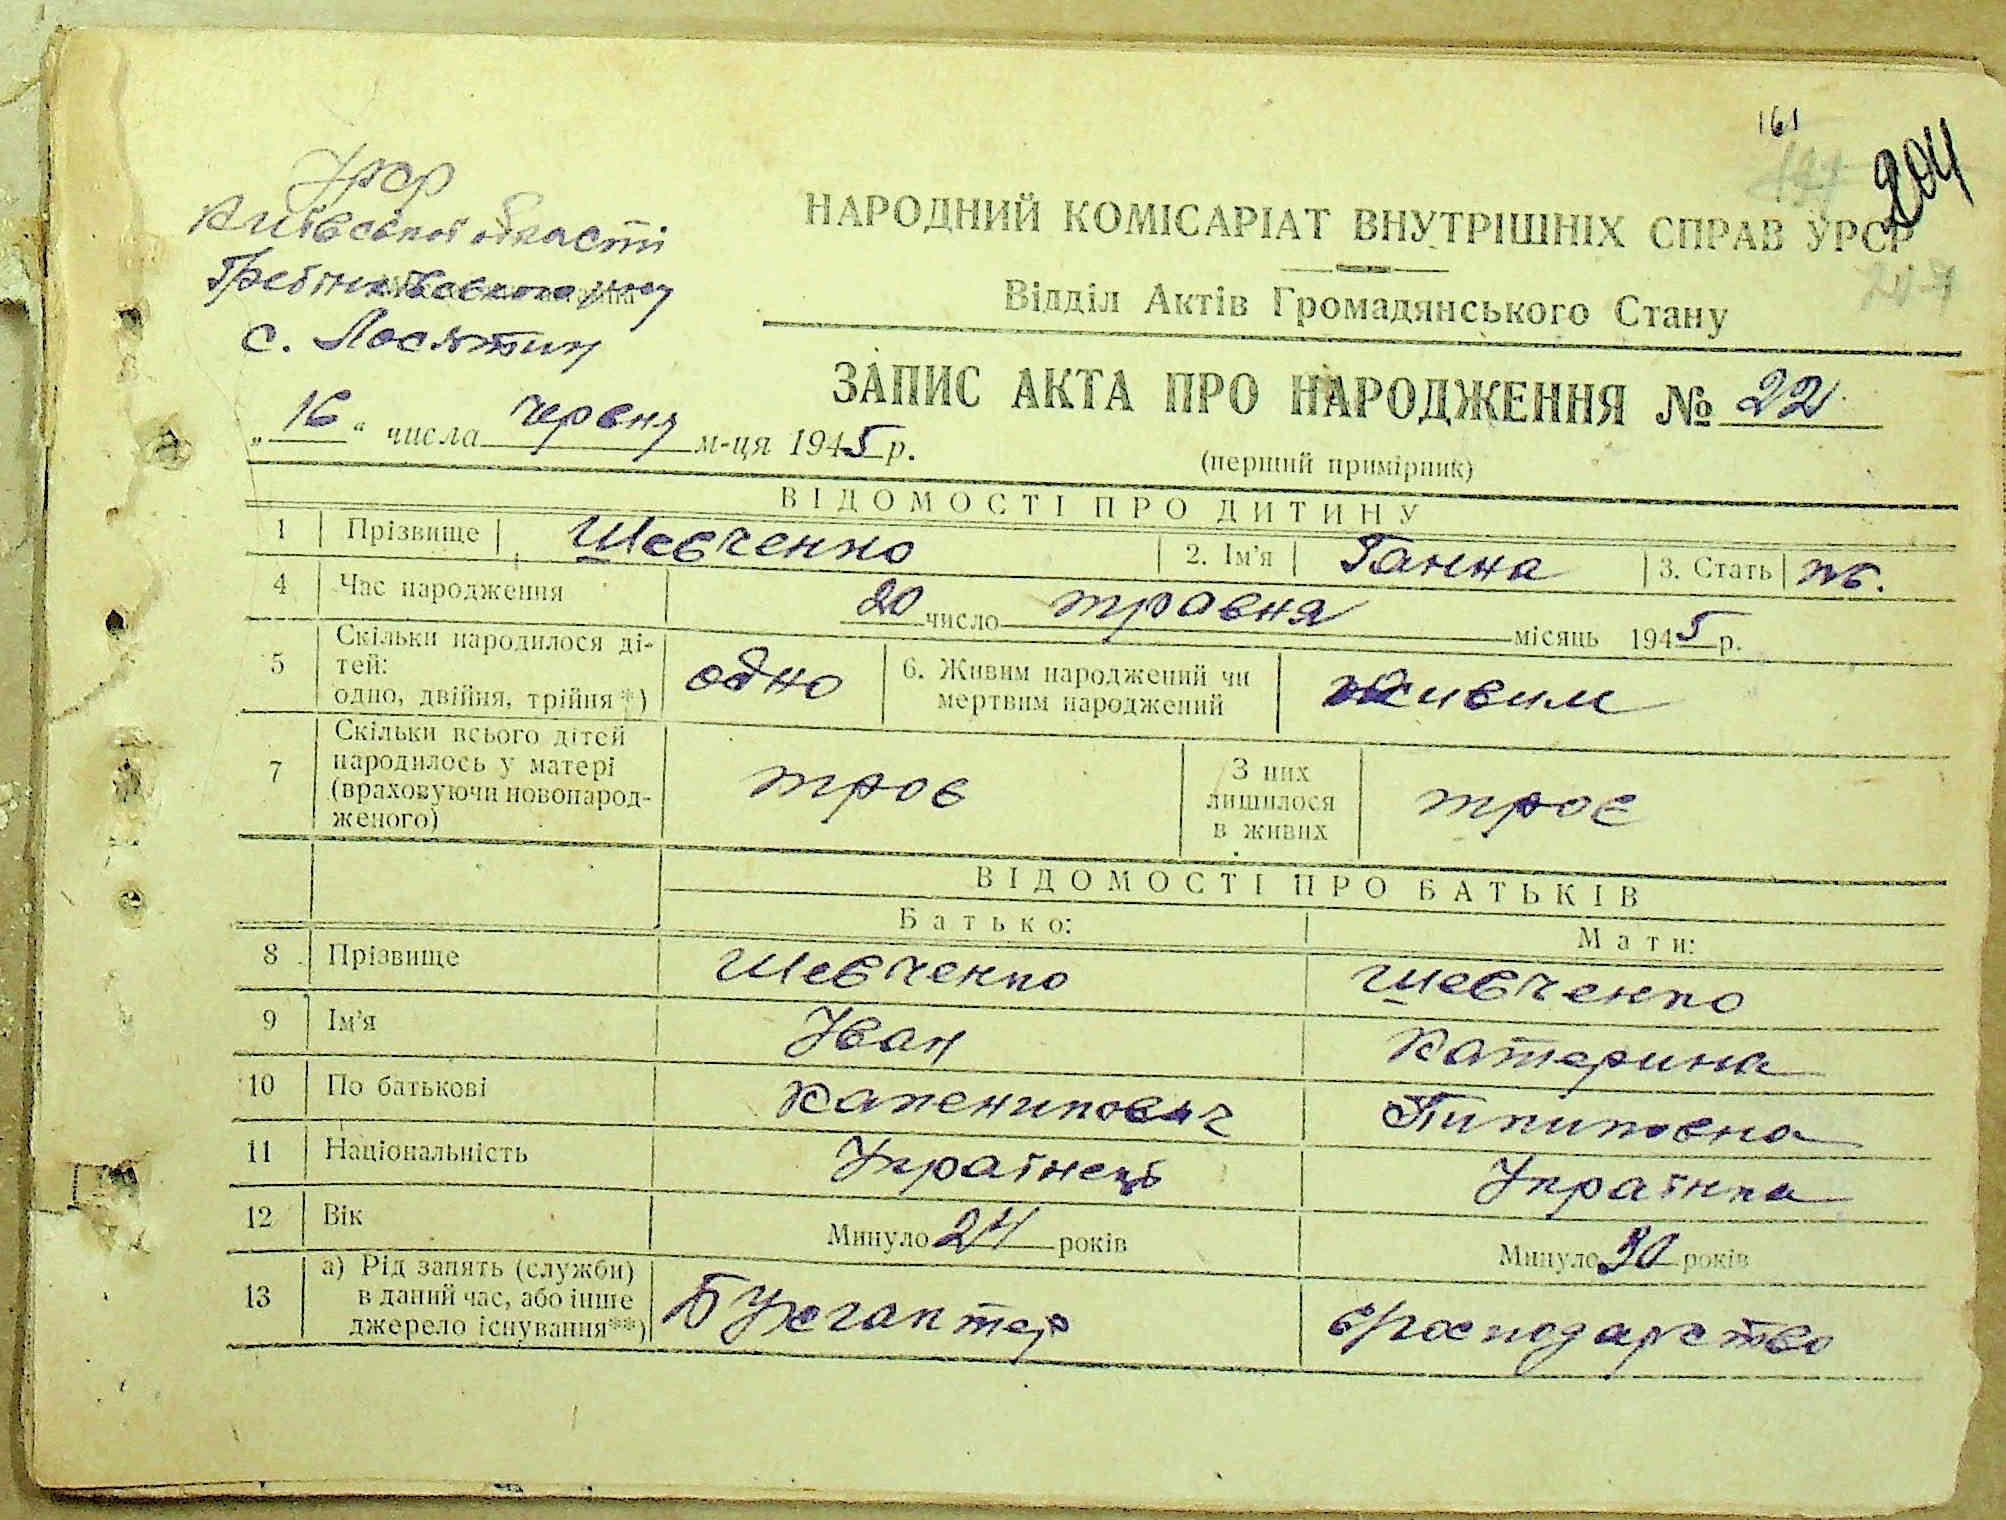 161
204
УРСР
Київської області
НАРОДНИЙ КОМІСАРІАТ ВНУТРІШНІХ СПРАВ УРСР
207
Гребінківського р-ну
Відділ Актів Громадянського Стану
с. Лосятин
ЗАПИС АКТА ПРО НАРОДЖЕННЯ № 22
„16“ числа червня м-ця 1945 р.
(перший примірник)
ВІДОМОСТІ ПРО ДИТИНУ
1 Прізвище Шевченко 2. Ім'я Ганна 3. Стать ж.
4 Час народження 20 число травня місяць 1945 р.
5 Скільки народилося ді-
тей:
одно, двійня, трійня*) одно 6. Живим народжений чи
мертвим народжений живим
7 Скільки всього дітей
народилось у матері
(враховуючи новонарод-
женого) троє З них
лишилося
в живих троє
ВІДОМОСТІ ПРО БАТЬКІВ
Батько: Мати:
8 Прізвище Шевченко Шевченко
9 Ім'я Іван Катерина
10 По батькові Каленикович Пилиповна
11 Національність Українець Українка
12 Вік Минуло 24 років Минуло 30 років
13 а) Рід занять (служби)
в даний час, або інше
джерело існування**) Бухгалтер господарство